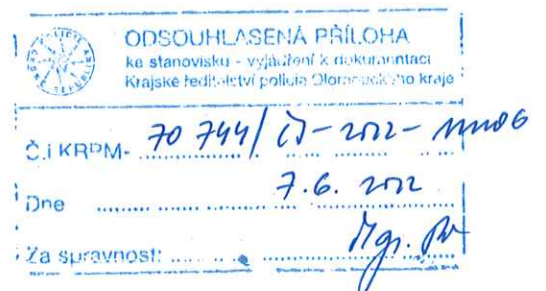 ODSOUHLASENÁ PŘÍLOHA
ke stanovisku - vyjádření k dokumentaci
Krajské ředitelství policie Olomouckého kraje
Č.j KRPM- 70 744/ ČJ-2022-
Dne 7.6. 2022
Za správnost: Mgr.